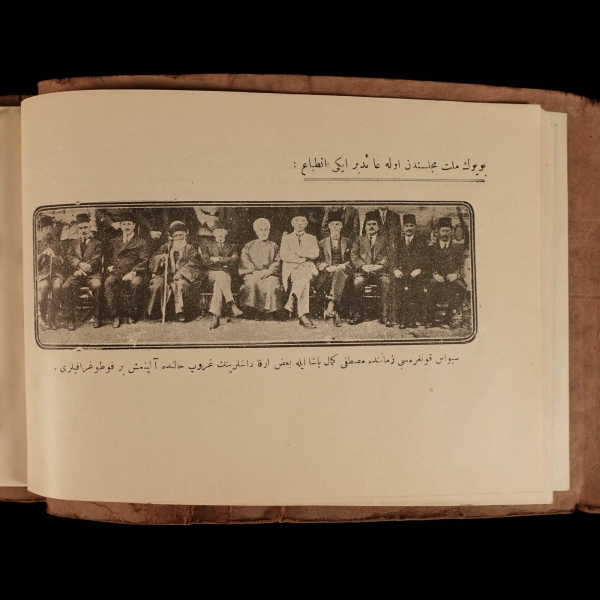 بویوك ملت مجلسندن اوله عائد بر ایكی انطباع :
سیواس قونغره‌سی زماننده مصطفی كمال پاشا ایله بعض ارقاداشلرینك غروپ حالنده آلینمش بر فوطوغرافیلری .